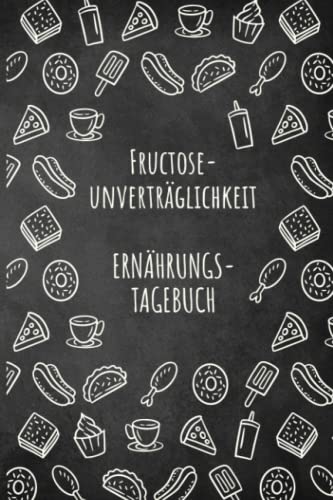 Fructose-
unverträglichkeit
Ernährungs-
tagebuch